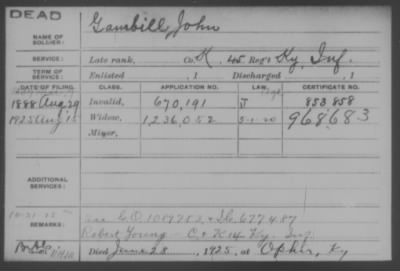 DEAD
NAME OF SOLDIER: Gambill, John
SERVICE: Late rank, Co. K, 45 Reg't Ky. Inf.
TERM OF SERVICE: Enlisted , 1 Discharged , 1
DATE OF FILING. CLASS. APPLICATION NO. LAW. CERTIFICATE NO.
1888 Aug 29 Invalid, 670,191 J 853858
1925 Aug 15 Widow, 1,236,052 5-1-20 968683
Minor,
ADDITIONAL SERVICES:
REMARKS: C.O. 1089752 + 677487
Robert Young - C + K 14 Ky. Inf.
Died June 28, 1925, at Ophir, Ky